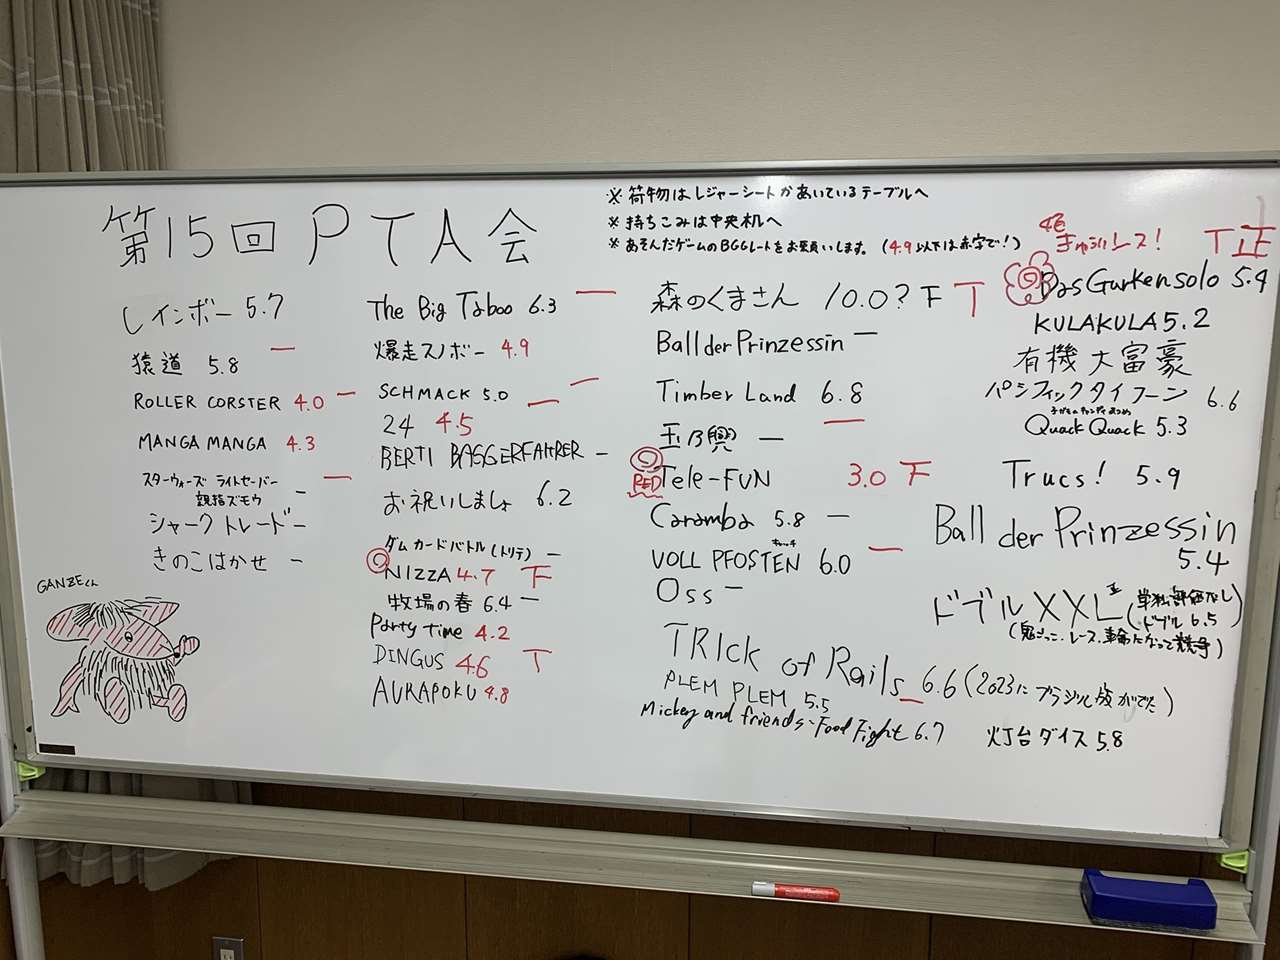 第15回 PTA会
※ 荷物はレジャーシートかあいているテーブルへ
※ 持ちこみは中央机へ
※ あそんだゲームのBGGレートをお願いします。(4.9以下は赤字で!)
レインボー 5.7
猿道 5.8 一
ROLLER CORSTER 4.0 一
MANGA MANGA 4.3
スターウォーズ ライトセーバー
親指ズモウ ー 一
シャークトレード ー
きのこはかせ ー
GANZEくん
The Big Taboo 6.3 一
爆走スノボー 4.9
SCHMACK 5.0 一
24 4.5 一
BERTI BAGGERFAHRER ー
お祝いしましょ 6.2
ダムカードバトル(トリテ) ー
◎NIZZA 4.7 下
牧場の春 6.4 ー
Party time 4.2
DINGUS 4.6 T
AURAPOKU 4.8
森のくまさん 10.0? 下 T
Ball der Prinzessin ー
Timber Land 6.8
玉乃輿 ー 一
◎Tele-FUN 3.0 下
RED
Caramba 5.8 ー
VOLL PFOSTEN 6.0 一
Oss ー
TRICK of Rails 6.6 (2023に ブラジル版がでた)
PLEM PLEM 5.5 一
Mickey and friends Food Fight 6.7
灯台ダイス 5.8
きゅうりレース! T 正
◎Das Gurkensolo 5.4
KULAKULA 5.2
有機大富豪
パシフィックタイフーン 6.6
Quack Quack 5.3
Trucs! 5.9
Ball der Prinzessin
5.4
ドブルXXL (単独評価なし
ドブル 6.5)
(鬼ごっこ、レース、輪になって競争)